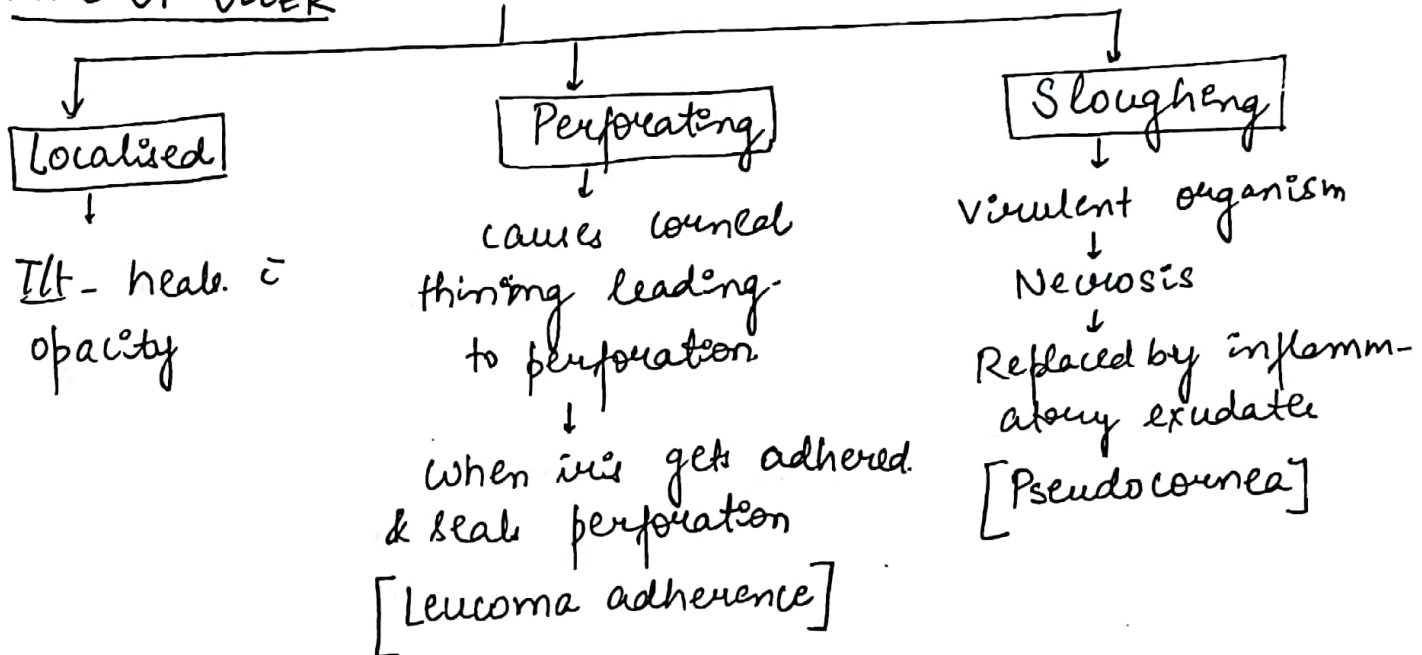 OF ULCER
Localised
heals c̄
opacity
Perforating
causes corneal
thining leading
to perforation
when iris gets adhered
& seals perforation
[Leucoma adherence]
Sloughing
Virulent organism
Necrosis
Replaced by inflamm-
atory exudates
[Pseudocornea]